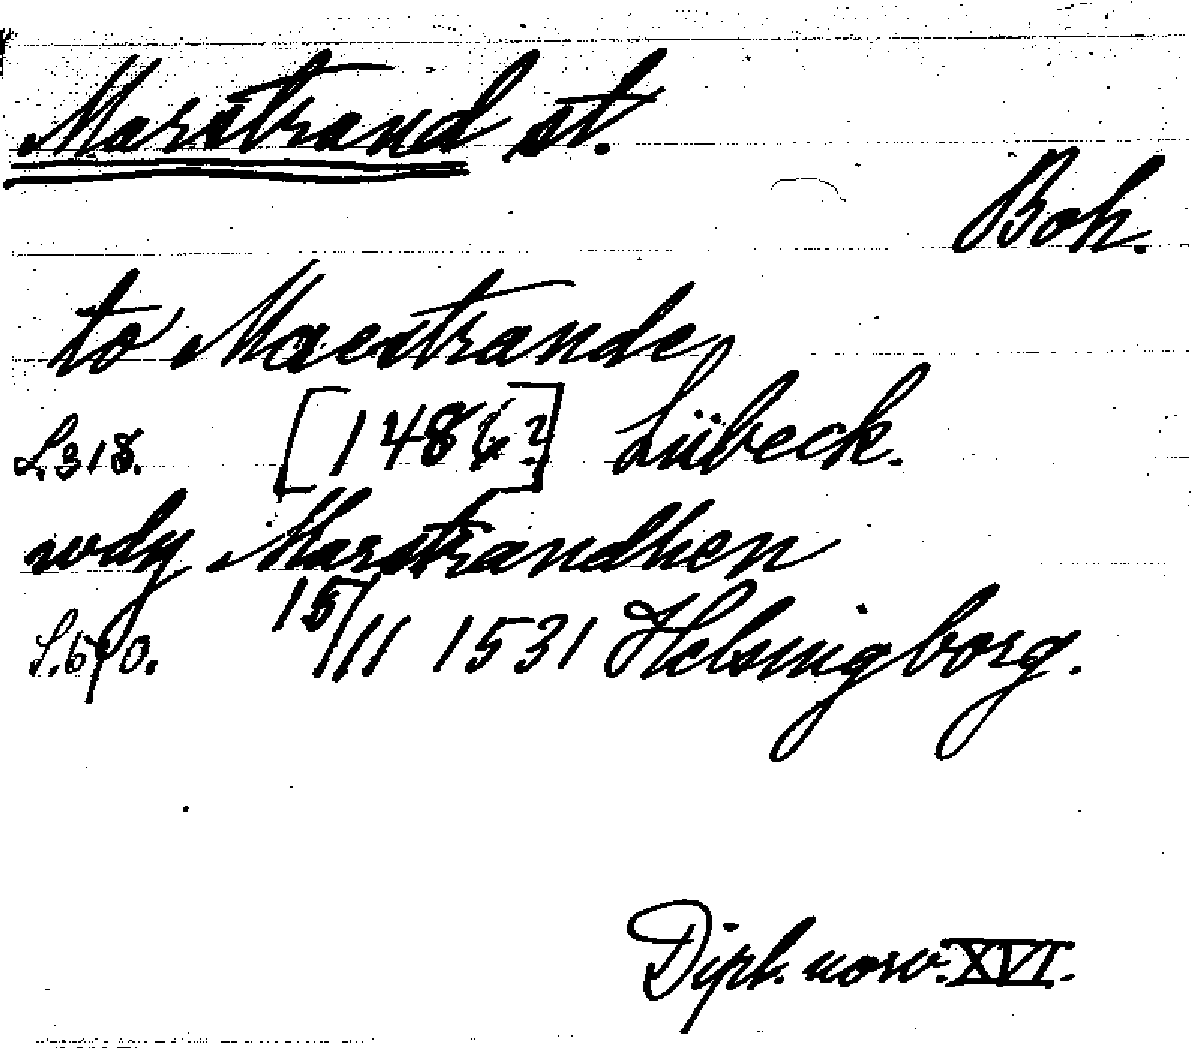 Marstrand st.
Boh.
to Maestrande
S. 318. [1486?] Lübeck.
wdy Marstrandhen
S. 690. 15/11 1531 Helsingborg.
Dipl. norv. XVI.